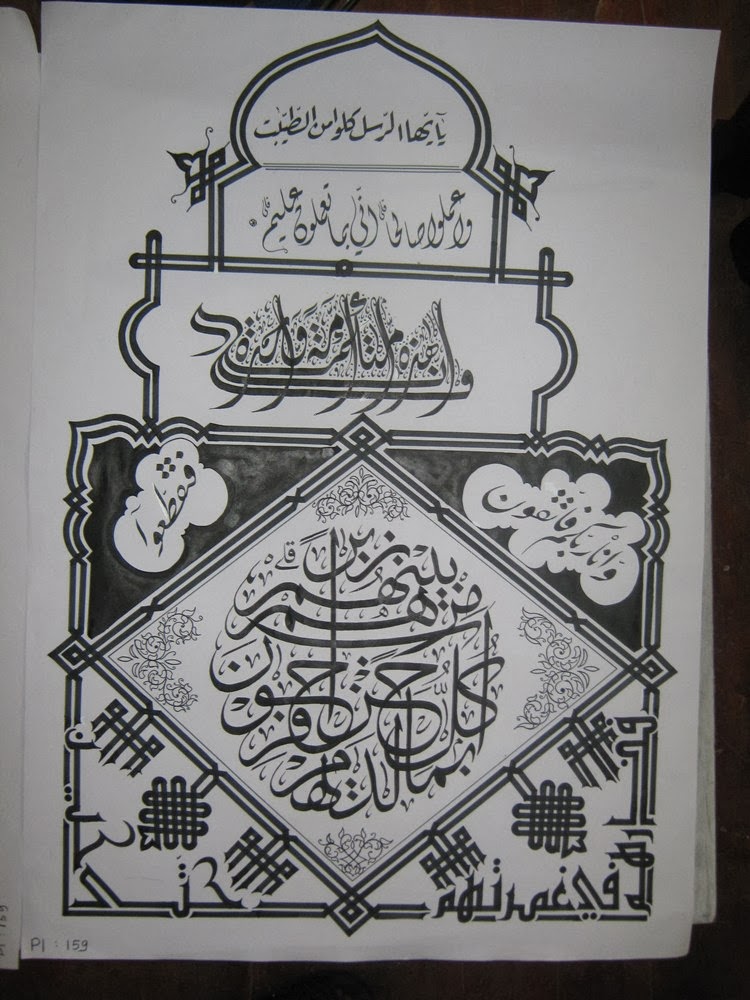 يٰٓأيّها الرّسل كلوا من الطّيّبٰت
واعملوا صالحا انّي بما تعملون عليم
وإن هذه أمتكم أمة واحدة
وانا ربكم فاتقون
فتقطعوا
أمرهم بينهم زبرا كل حزب بما لديهم فرحون
فذرهم في غمرتهم حتى حين
PI : 159